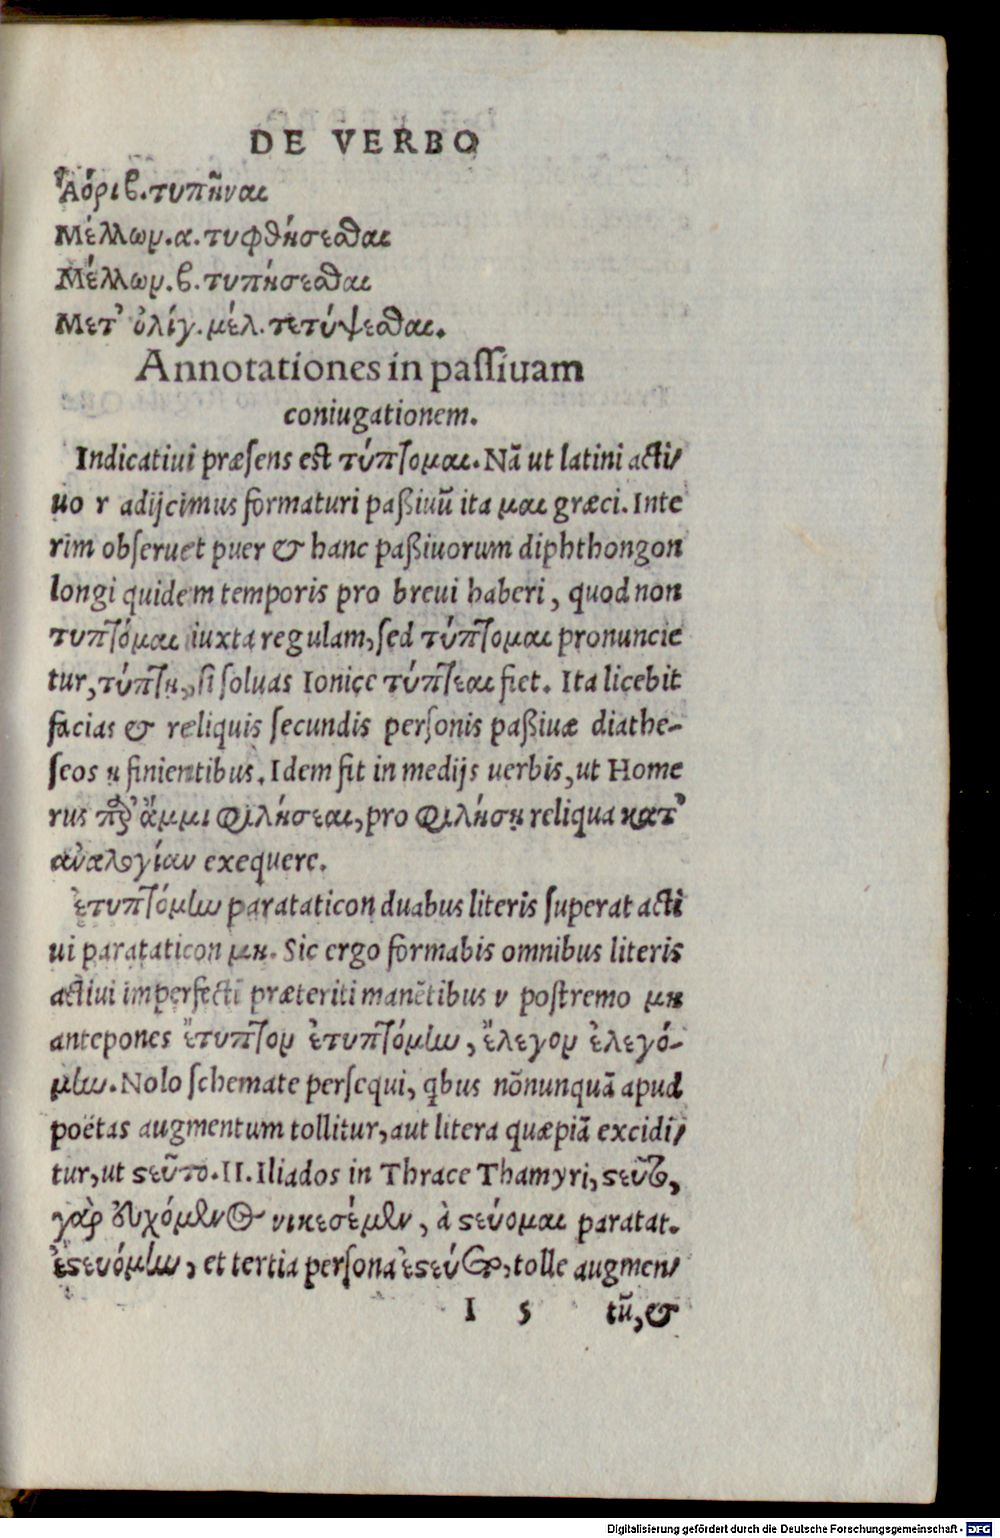 DE VERBO
Ἀόρι β. τυπῆναι
Μέλλων. α. τυφθήσεσθαι
Μέλλων. β. τυπήσεσθαι
Μετ' ὀλίγ. μέλ. τετύψεσθαι.
Annotationes in paſſiuam
coniugationem.
Indicatiui præſens eſt τύπτομαι. Nā ut latini acti/
uo r adijcimus formaturi paßiuū ita μαι græci. Inte
rim obſeruet puer & hanc paßiuorum diphthongon
longi quidem temporis pro breui haberi, quod non
τυπτόμαι iuxta regulam, ſed τύπτομαι pronuncie
tur, τύπτῃ, ſi ſoluas Ionice τύπτεαι fiet. Ita licebit
facias & reliquis ſecundis perſonis paßiuæ diathe-
ſeos ῃ finientibus. Idem fit in medijs uerbis, ut Home
rus ἄμμι φιλήσεαι, pro φιλήσῃ reliqua κατ'
ἀναλογίαν exequere.
ἐτυπτόμην parataticon duabus literis ſuperat acti
ui parataticon μη. Sic ergo formabis omnibus literis
actiui imperfecti præteriti manētibus ν poſtremo μη
antepones ἔτυπτον ἐτυπτόμην, ἔλεγον ἐλεγό-
μην. Nolo ſchemate perſequi, qbus nōnunquā apud
poëtas augmentum tollitur, aut litera quæpiā excidi/
tur, ut ςεῦτο. II. Iliados in Thrace Thamyri, ςεῦτο,
γὰρ ἐυχόμενος νικεσέμεν, à ςεύομαι paratat.
ἐςευόμην, et tertia perſona ἐςεύετο, tolle augmen/
I 5 tū, &
Digitalisierung gefördert durch die Deutsche Forschungsgemeinschaft - DFG